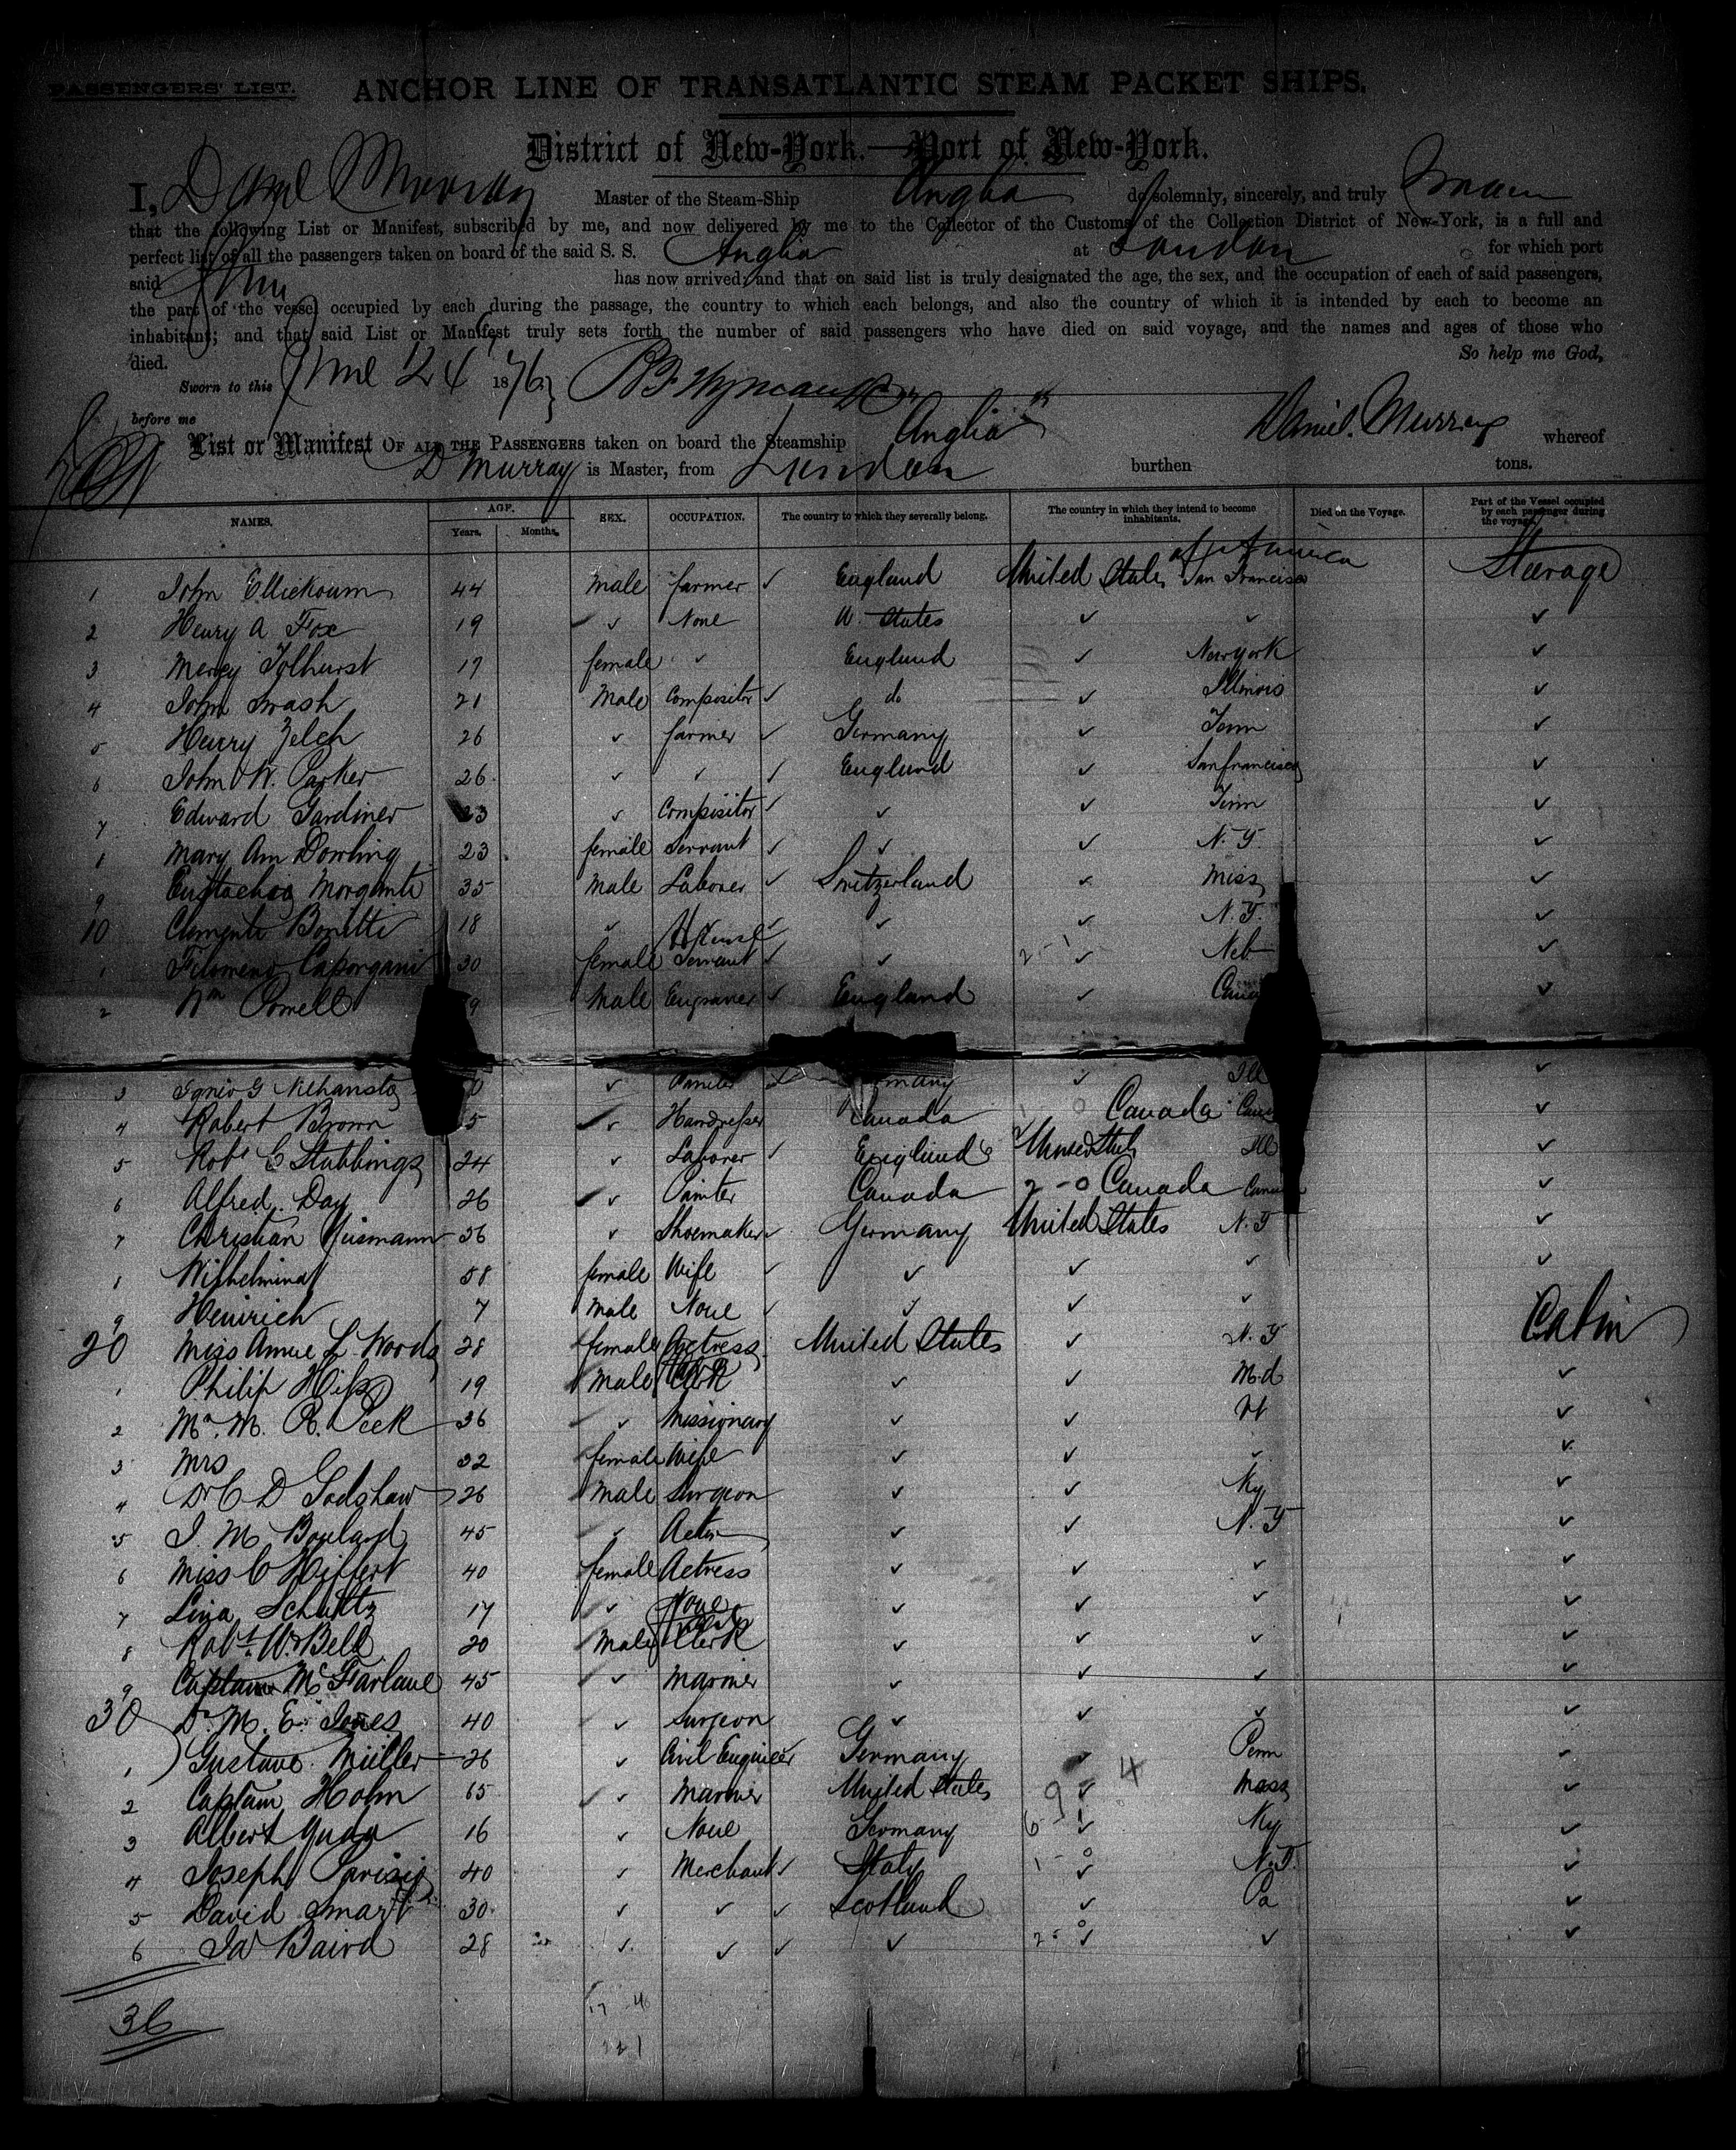 PASSENGERS' LIST. ANCHOR LINE OF TRANSATLANTIC STEAM PACKET SHIPS.
District of New-York.—Port of New-York.
I, Danl Murray Master of the Steam-Ship Anglia do solemnly, sincerely, and truly Swear
that the following List or Manifest, subscribed by me, and now delivered by me to the Collector of the Customs of the Collection District of New-York, is a full and
perfect list of all the passengers taken on board of the said S. S. Anglia at London for which port
said has now arrived; and that on said list is truly designated the age, the sex, and the occupation of each of said passengers,
the part of the vessel occupied by each during the passage, the country to which each belongs, and also the country of which it is intended by each to become an
inhabitant; and that said List or Manifest truly sets forth the number of said passengers who have died on said voyage, and the names and ages of those who
died. So help me God,
Sworn to this June 24 1876
before me Daniel Murray
List or Manifest OF ALL THE PASSENGERS taken on board the Steamship Anglia whereof
D Murray is Master, from London burthen tons.
NAMES. AGE. Years. Months. SEX. OCCUPATION. The country to which they severally belong. The country in which they intend to become inhabitants. Died on the Voyage. Part of the Vessel occupied by each passenger during the voyage.
of America
1 John 44 male farmer ✓ England United States San Francisco Steerage
2 Henry A Fox 19 ✓ None U. States ✓ ✓ ✓
3 Mercy Tolhurst 17 female ✓ England ✓ New York ✓
4 John 21 Male Compositor ✓ do ✓ Illinois ✓
5 Henry Zelch 26 ✓ farmer ✓ Germany ✓ Tenn ✓
6 John W. Parker 26 ✓ ✓ ✓ England ✓ San francisco ✓
7 Edward Gardiner 23 ✓ Compositor ✓ ✓ ✓ Tenn ✓
8 Mary Ann Dowling 23 female Servant ✓ ✓ ✓ N. Y. ✓
9 Morganti 35 Male Laborer ✓ Switzerland ✓ Miss ✓
10 Clemente Bonetti 18 ✓ ✓ ✓ ✓ N. Y. ✓
1 Filomeno 30 female Servant ✓ ✓ ✓ Neb ✓
2 Wm 9 Male Engraver ✓ England ✓ Cana ✓
3 0 ✓ Painter ✓ many ✓ Ill ✓
4 Robert Brown 5 ✓ Canada Canada Cana ✓
5 Robt C Stubbings 24 ✓ Laborer ✓ England United States Ill ✓
6 Alfred Day 26 ✓ Painter Canada 2 - 0 Canada Cana ✓
7 Christian 56 ✓ Shoemaker ✓ Germany United States N. Y ✓
8 Wilhelmina 58 female Wife ✓ ✓ ✓ ✓ ✓
9 Heinrich 7 male None ✓ ✓ ✓ ✓
20 Miss Annie L Woods 28 female Actress United States ✓ N. Y Cabin
1 Philip 19 Male Clerk ✓ ✓ Md ✓
2 Mr. M. R. Peek 36 ✓ Missionary ✓ ✓ ✓
3 Mrs 32 female Wife ✓ ✓ ✓ ✓
4 Dr C D Godshaw 26 Male Surgeon ✓ ✓ Ky ✓
5 J. M 45 ✓ Actor ✓ ✓ N. Y ✓
6 Miss C Hiffert 40 female Actress ✓ ✓ ✓ ✓
7 Lina Schultz 17 ✓ None ✓ ✓ ✓ ✓
8 Robt. W. Bell 20 Male Clerk ✓ ✓ ✓ ✓
9 Captain McFarlane 45 ✓ Mariner ✓ ✓ ✓ ✓
30 Dr. M. E. Jones 40 ✓ Surgeon ✓ ✓ ✓ ✓
1 Gustave Müller 26 ✓ Civil Engineer Germany ✓ Penn ✓
2 Captain Holm 65 ✓ Mariner United States 9 ✓ 4 Mass ✓
3 Albert 16 ✓ None Germany ✓ Ky ✓
4 Joseph 40 ✓ Merchant ✓ Italy ✓ N. Y. ✓
5 David Smart 30 ✓ ✓ ✓ Scotland ✓ Pa ✓
6 Baird 28 ✓ ✓ ✓ ✓ ✓ ✓ ✓
36